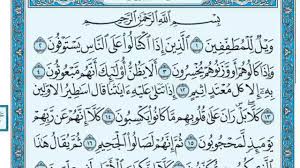 بِسْمِ ٱللَّهِ ٱلرَّحْمَٰنِ ٱلرَّحِيمِ
وَيْلٌ لِّلْمُطَفِّفِينَ ١ ٱلَّذِينَ إِذَا ٱكْتَالُوا۟ عَلَى ٱلنَّاسِ يَسْتَوْفُونَ ٢
وَإِذَا كَالُوهُمْ أَو وَّزَنُوهُمْ يُخْسِرُونَ ٣ أَلَا يَظُنُّ أُو۟لَٰٓئِكَ أَنَّهُم مَّبْعُوثُونَ ٤
بِهِۦٓ إِلَّا كُلُّ مُعْتَدٍ أَثِيمٍ ١٢ إِذَا تُتْلَىٰ عَلَيْهِ ءَايَٰتُنَا قَالَ أَسَٰطِيرُ ٱلْأَوَّلِينَ
١٣ كَلَّا بَلْ رَانَ عَلَىٰ قُلُوبِهِم مَّا كَانُوا۟ يَكْسِبُونَ ١٤ كَلَّآ إِنَّهُمْ عَن رَّبِّهِمْ
يَوْمَئِذٍ لَّمَحْجُوبُونَ ١٥ ثُمَّ إِنَّهُمْ لَصَالُوا۟ ٱلْجَحِيمِ ١٦ ثُمَّ يُقَالُ هَٰذَا